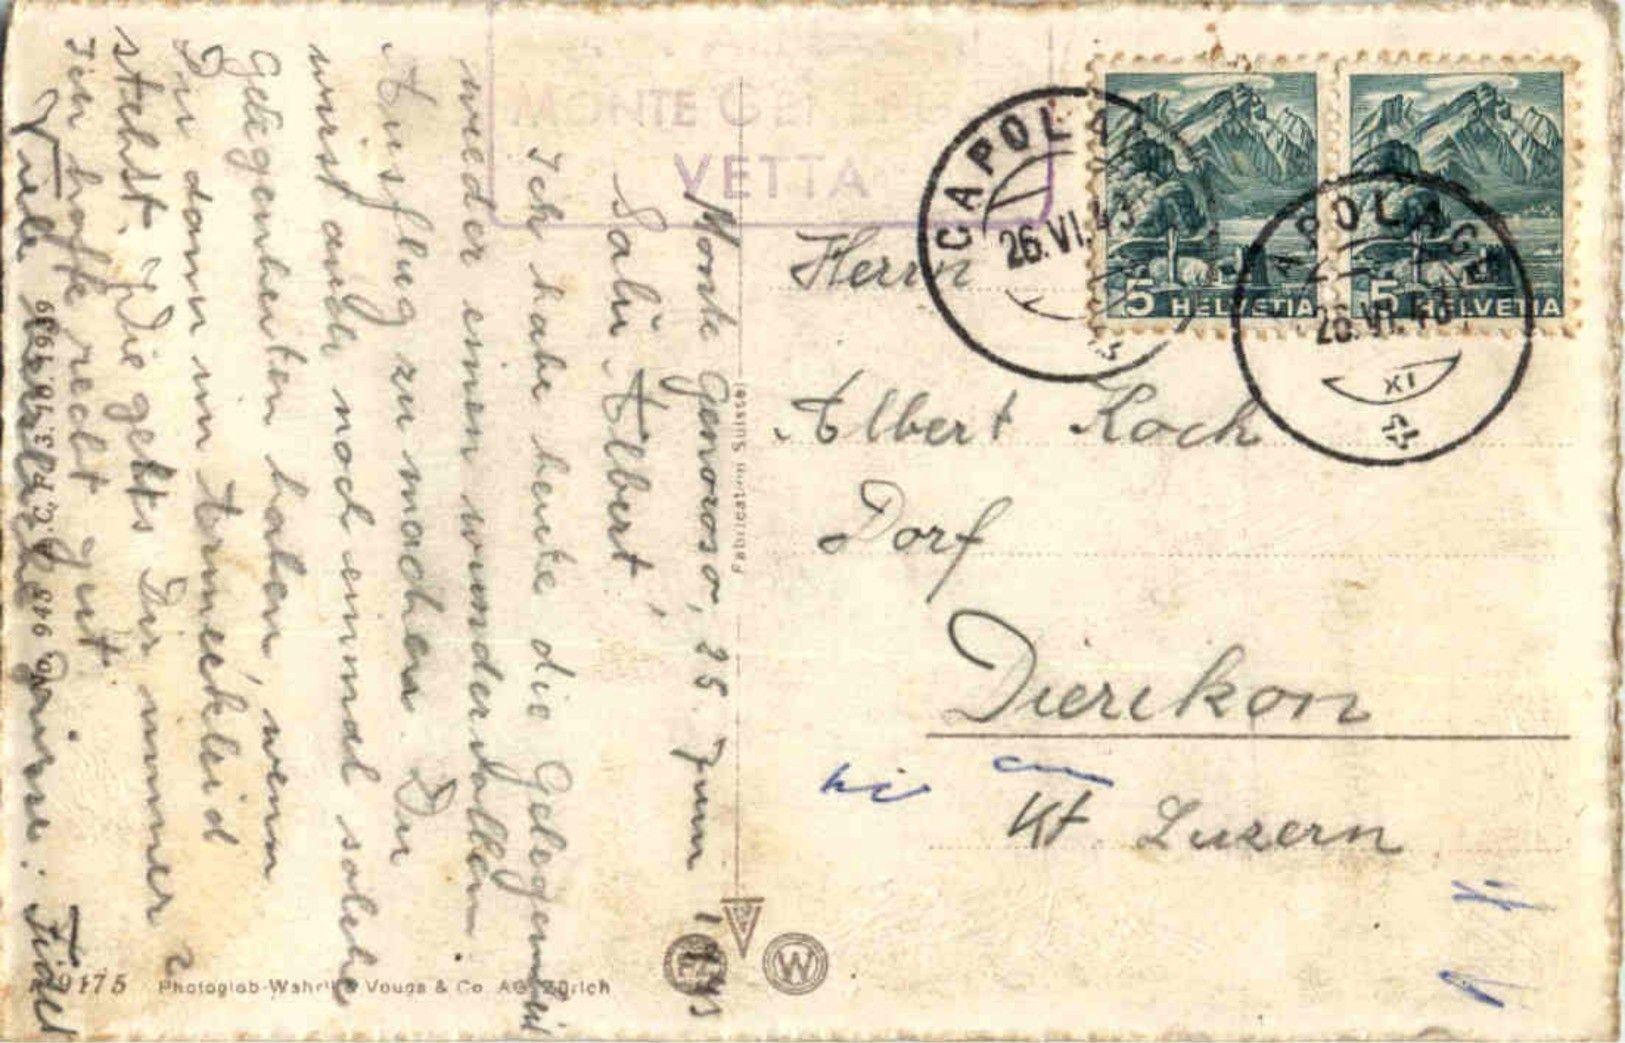 MONTE GENEROSO
VETTA
Monte Generoso, 25. Juni 1943
Salü Albert,
Ich habe heute die Gelegenheit
wieder einen wundervollen
Ausflug zu machen. Du
wirst auch noch einmal solche
Gelegenheiten haben, wenn
Du dann im Ermeékleid
stehst. Wie gehts Dir immer?
Ich hoffe recht gut
Viele herzliche Grüsse: Fidel
Herrn
Albert Koch
Dorf
Dierikon
Kt. Luzern
CAPOLAGO
26.VI.43
CAPOLAGO
26.VI.43
XI
5 HELVETIA
5 HELVETIA
Fabrication Suisse
W
9175 Photoglob-Wehrli & Vouga & Co. AG. Zürich